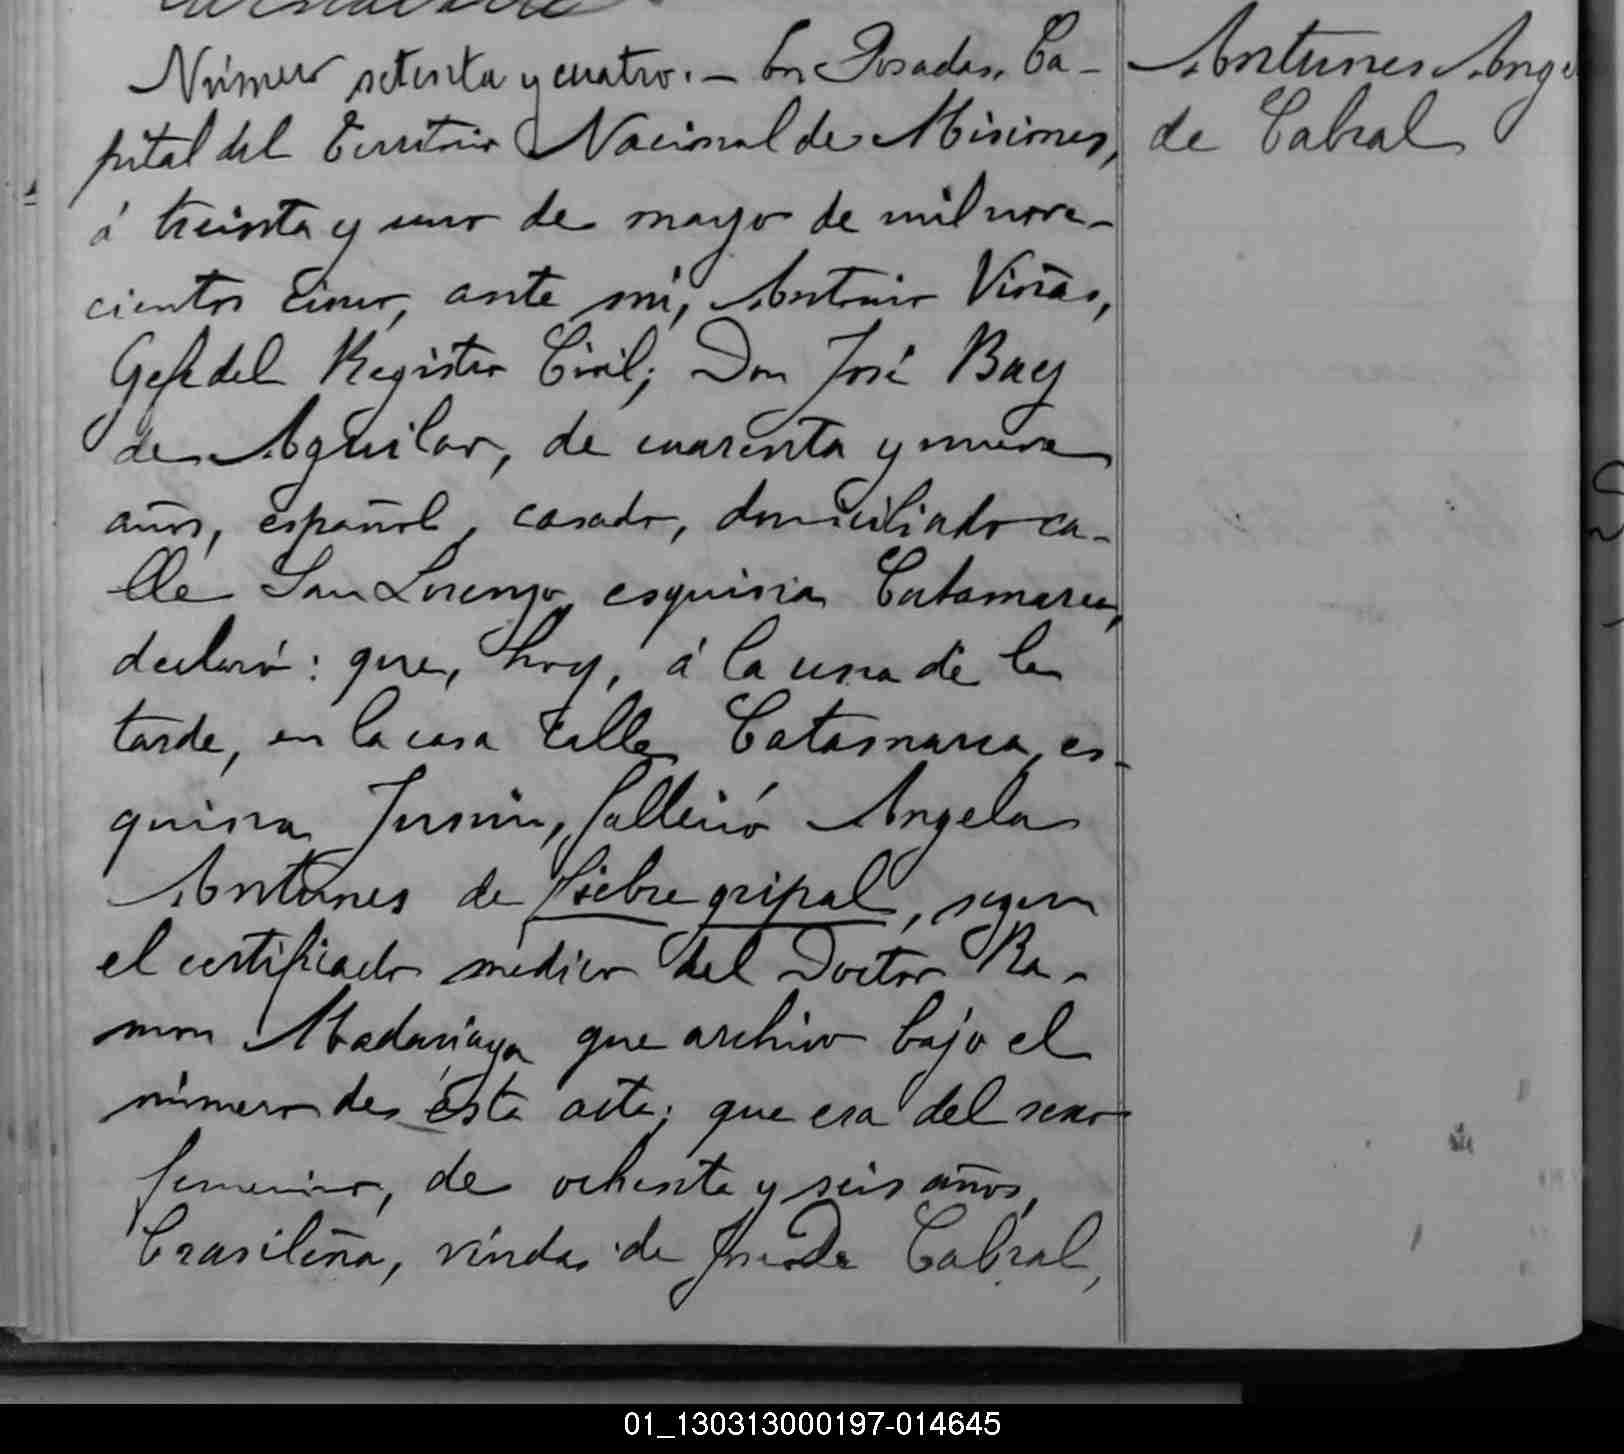 Número setenta y cuatro. – En Posadas, Ca-
pital del Territorio Nacional de Misiones,
á treinta y uno de mayo de mil nove-
cientos cinco, ante mi, Antonio Viñas,
Gefe del Registro Civil; Don José Baey
de Aguilar, de cuarenta y nueve
años, español, casado, domiciliado ca-
lle San Lorenzo esquina Catamarca,
declaró: que, hoy, á la una de la
tarde, en la casa calle Catamarca, es-
quina Junin, falleció Angela
Antunes de fiebre gripal, segun
el certificado medico del Doctor Ra-
mon Madariaga que archivo bajo el
número de ésta acta; que era del sexo
femenino, de ochenta y seis años,
brasileña, viuda de José de Cabral,
Antunes Ange
de Cabral
01_130313000197-014645